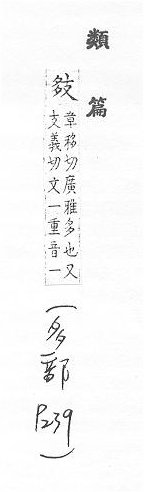 類篇
章移切廣雅多也又
支義切文一重音一
(多部 P239)